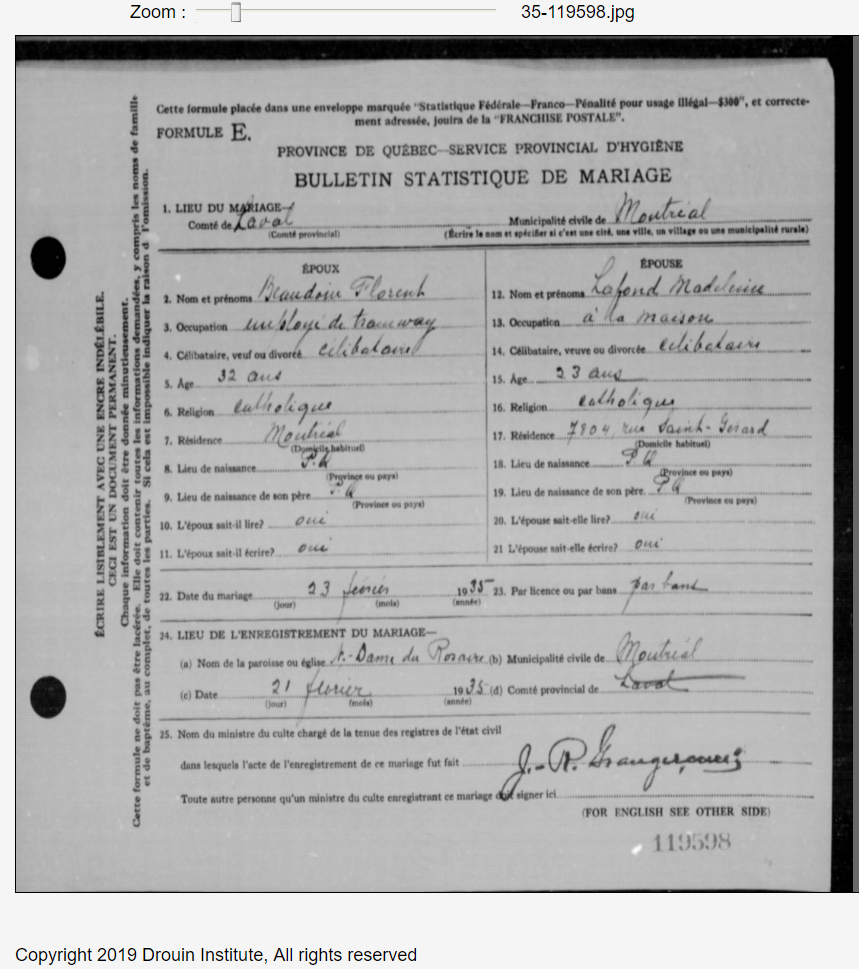 Zoom : 35-119598.jpg
Cette formule placée dans une enveloppe marquée "Statistique Fédérale—Franco—Pénalité pour usage illégal—$300", et correcte-
ment adressée, jouira de la "FRANCHISE POSTALE".
FORMULE E.
PROVINCE DE QUÉBEC—SERVICE PROVINCIAL D'HYGIÈNE
BULLETIN STATISTIQUE DE MARIAGE
1. LIEU DU MARIAGE—
Comté de Laval Municipalité civile de Montréal
(Comté provincial) (Écrire le nom et spécifier si c'est une cité, une ville, un village ou une municipalité rurale)
ÉPOUX
2. Nom et prénoms Beaudoin Florent
3. Occupation employé de tramway
4. Célibataire, veuf ou divorcé célibataire
5. Âge 32 ans
6. Religion catholique
7. Résidence Montréal
(Domicile habituel)
8. Lieu de naissance P.Q
(Province ou pays)
9. Lieu de naissance de son père P.Q
(Province ou pays)
10. L'époux sait-il lire? oui
11. L'époux sait-il écrire? oui
ÉPOUSE
12. Nom et prénoms Lafond Madeleine
13. Occupation à la maison
14. Célibataire, veuve ou divorcée célibataire
15. Âge 23 ans
16. Religion catholique
17. Résidence 7804, rue Saint-Gérard
(Domicile habituel)
18. Lieu de naissance P.Q
(Province ou pays)
19. Lieu de naissance de son père P Q
(Province ou pays)
20. L'épouse sait-elle lire? oui
21 L'épouse sait-elle écrire? oui
22. Date du mariage 23 février 1935 23. Par licence ou par bans par bans
(jour) (mois) (année)
24. LIEU DE L'ENREGISTREMENT DU MARIAGE—
(a) Nom de la paroisse ou église N.-Dame du Rosaire (b) Municipalité civile de Montréal
(c) Date 21 février 1935 (d) Comté provincial de Laval
(jour) (mois) (année)
25. Nom du ministre du culte chargé de la tenue des registres de l'état civil
dans lesquels l'acte de l'enregistrement de ce mariage fut fait J.-R. Granger
Toute autre personne qu'un ministre du culte enregistrant ce mariage doit signer ici
(FOR ENGLISH SEE OTHER SIDE)
119598
ÉCRIRE LISIBLEMENT AVEC UNE ENCRE INDÉLÉBILE.
CECI EST UN DOCUMENT PERMANENT.
Chaque information doit être donnée minutieusement.
Cette formule ne doit pas être lacérée. Elle doit contenir toutes les informations demandées, y compris les noms de famille
et de baptême, au complet, de toutes les parties. Si cela est impossible indiquer la raison d l'omission.
Copyright 2019 Drouin Institute, All rights reserved